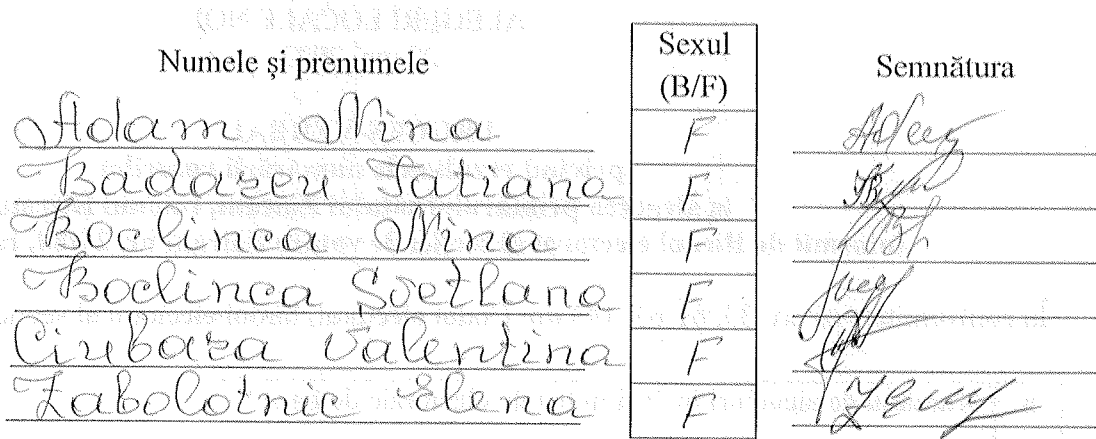 Numele și prenumele Sexul (B/F) Semnătura
Adam Nina F
Badareu Tatiana F
Boclinca Nina F
Boclinca Svetlana F
Ciubara Valentina F
Zabolotnic Elena F